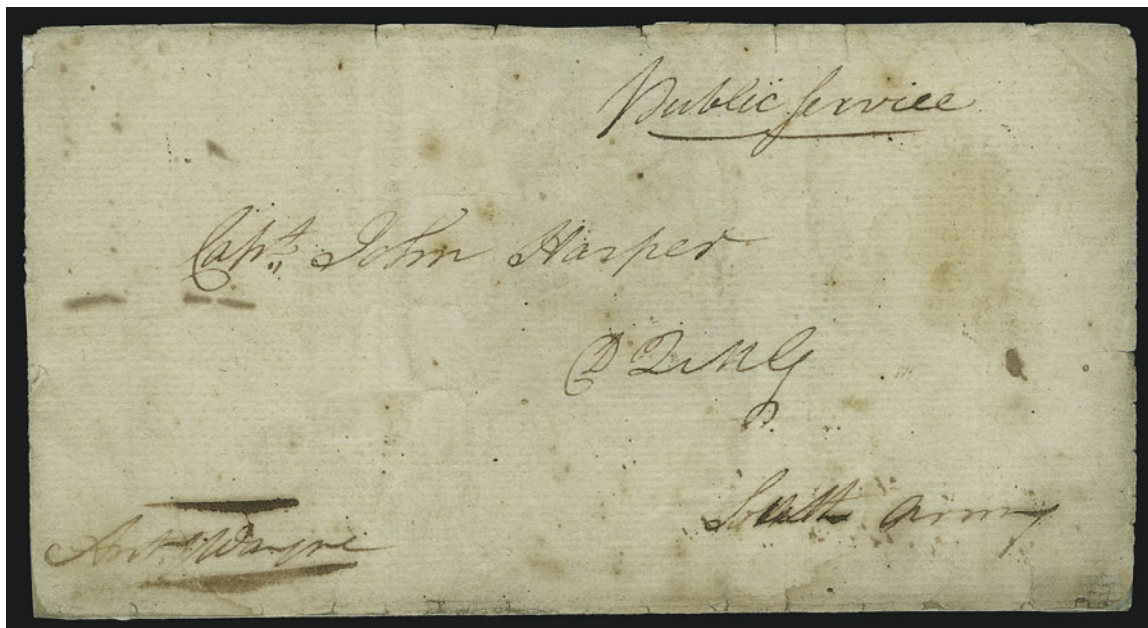 Public Service
Capt. John Harper
D Q M G
South Army
Ant. Wayne